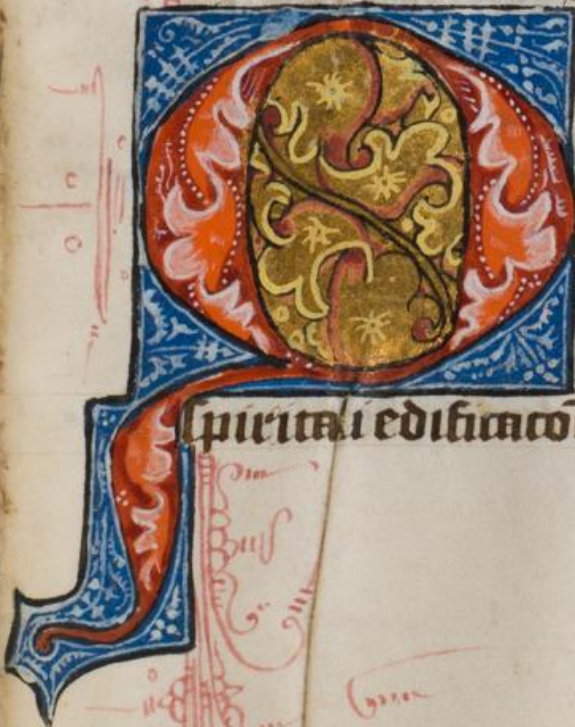 Q
spiritali edificacō